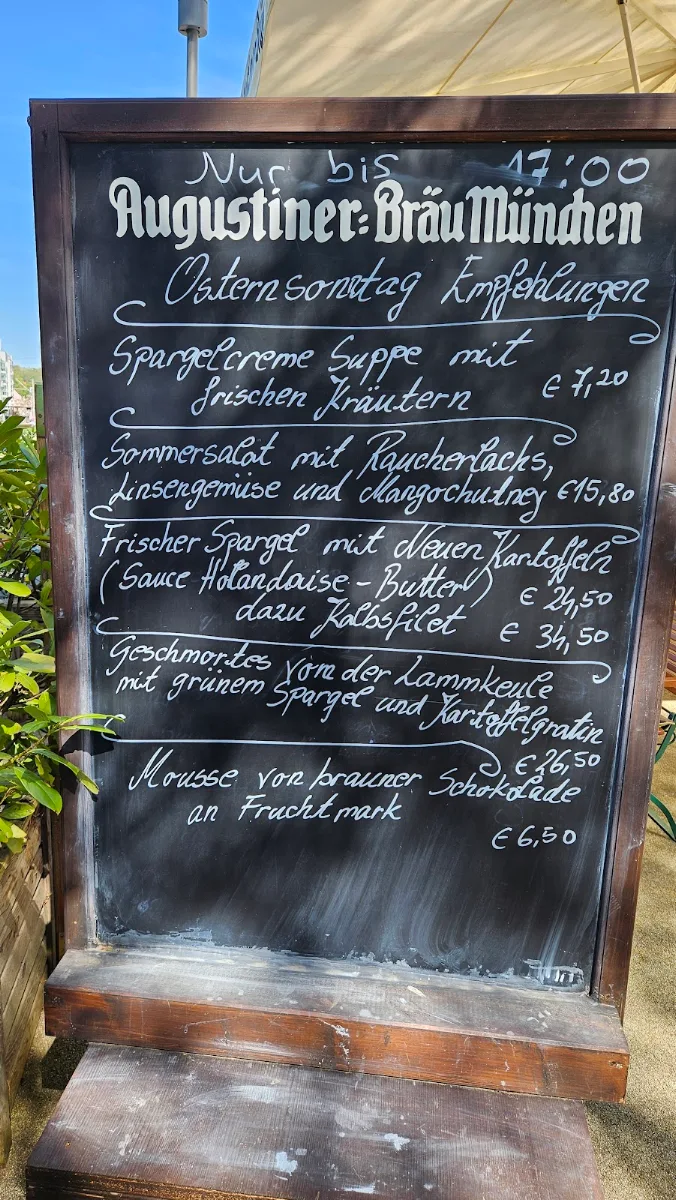 Nur bis 17:00
Augustiner-Bräu München
Osternsonntag Empfehlungen
Spargelcreme Suppe mit
frischen Kräutern € 7,20
Sommersalat mit Raucherlachs,
Linsengemüse und Mangochutney €15,80
Frischer Spargel mit Neuen Kartoffeln
(Sauce Holandaise - Butter) € 24,50
dazu Kalbsfilet € 34,50
Geschmortes von der Lammkeule
mit grünem Spargel und Kartoffelgratin
€ 26,50
Mousse von brauner Schokolade
an Fruchtmark
€ 6,50